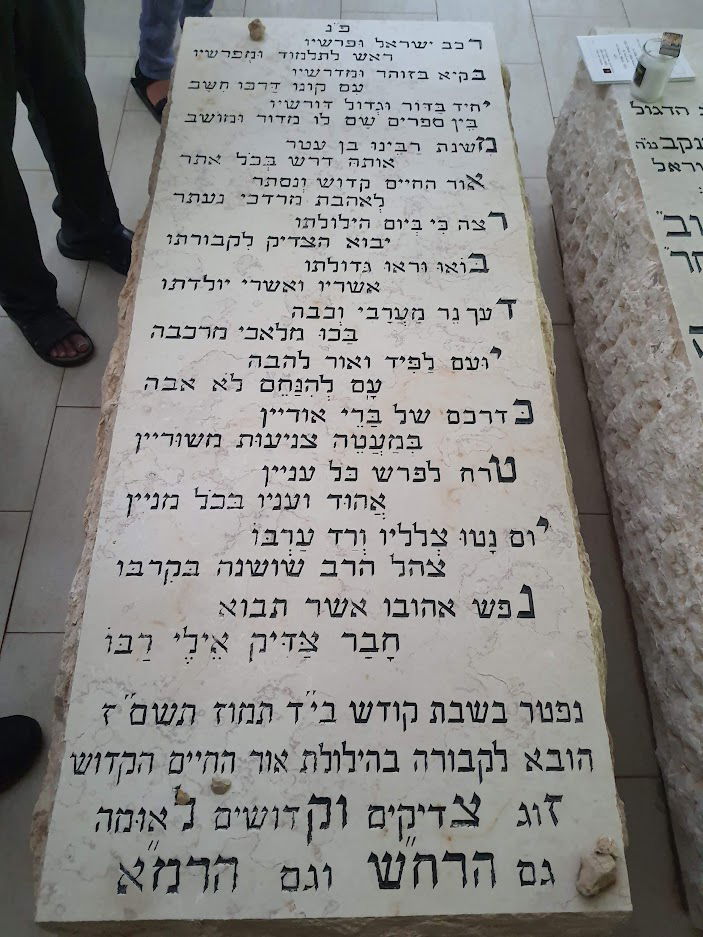 פ״נ
רכב ישראל ופרשיו
ראש לתלמוד ומפרשיו
בקיא בזוהר ומדרשיו
עם קונו דַרכּו חִשַב
יחיד בַּדור וגדול דורשיו
בֵּין ספרים שָם לו מדור ומושב
מִשנת רבֵּינו בן עטר
אותה דרש בְּכֹל אתר
אור החיים קדוש ונִסתר
לְאהבת מרדכי נעתר
רצה כִּי בְּיום הילולתו
יבוא הצדיק לִקבורתו
בּואו וּראו גדולתו
אשריו ואשרי יולדתו
דעך נר מַעֲרָבי וְכבה
בַּכו מלאכי מרכבה
יוּעם לַפִּיד ואור להבה
עָם לְהִנַחֵם לֹא אבה
כּדרכם של בַּרֵי אוריין
בְּמַעֲטֵה צניעות משוריין
טרח לפרש כל עניין
אֲהוּד ועניו בּכֹל מניין
יום נָטוּ צְלליו וְרַד עַרְבּוֹ
צהל הרב שושנה בּקִרבו
נפש אהובו אשר תבוא
חָבַר צַדִּיק אֵילֵי רַבּוֹ
נפטר בשבת קודש בי״ד תמוז תשמ״ז
הובא לקבורה בהילולת אור החיים הקדוש
זוג צדיקים וקדושים נ׳ אומה
גם הרח״ש וגם הרמ״א
הדגול
יעקב
זצ״ל